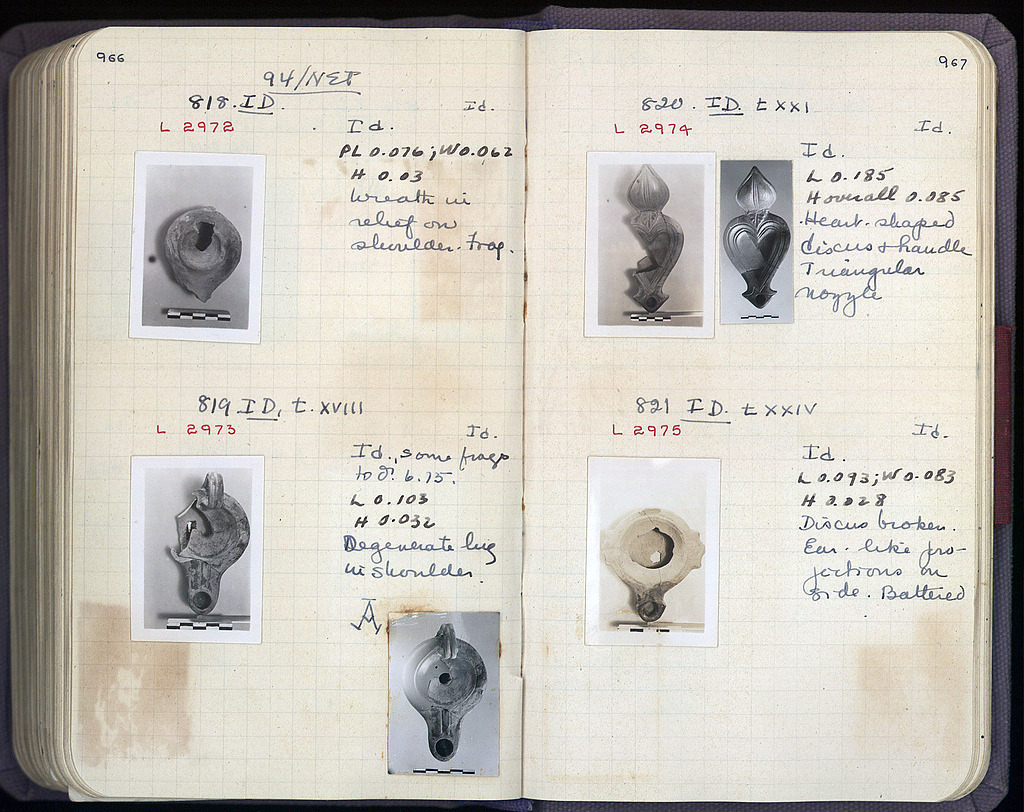 966
94/NEP
818. ID. Id.
L 2972
Id.
PL 0.076; W 0.062
H 0.03
Wreath in
relief on
shoulder. Frag.
819 ID, t. XVIII
L 2973 Id.
Id., some frags
to 6.15.
L 0.103
H 0.032
Degenerate lug
in shoulder.
967
820. ID. t XXI
L 2974 Id.
Id.
L 0.185
H overall 0.085
Heart-shaped
discus & handle
Triangular
nozzle
821 ID. t XXIV
L 2975 Id.
Id.
L 0.093; W 0.083
H 0.028
Discus broken.
Ear-like pro-
jections on
side. Battered